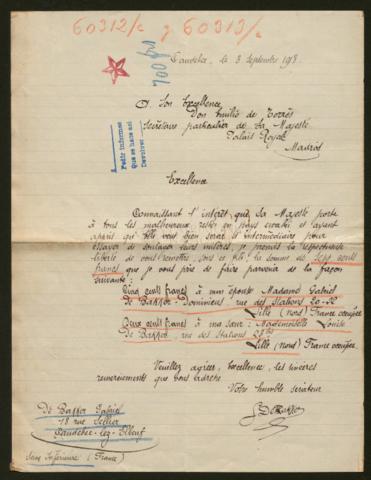 60312/c y 60313/c
700 frs
Caudebec, le 3 Septembre 1918.
A Son Excellence
Don Emilio de Torrès
Secrétaire particulier de Sa Majesté
Palais Royal
Madrid
Pedir informes
Que se hace así
Devolver
Excellence
Connaissant l'intérêt que Sa Majesté porte
à tous les malheureux restés en pays envahi et ayant
appris qu'elle veut bien servir d'intermédiaire pour
essayer de soulager leurs misères, je prends la respectueuse
liberté de vous remettre, sous ce pli, la somme de Sept cents
francs que je vous prie de faire parvenir de la façon
suivante:
Cinq cents francs à mon épouse Madame Gabriel
De Bakker-Dominicus rue des Stations
Lille (Nord) France occupée
Deux cents francs à ma sœur: Mademoiselle Louise
De Bakker, rue des Stations
Lille (Nord) France occupée.
Veuillez agréer, Excellence, les sincères
remerciements que vous adresse
Votre humble serviteur
De Bakker Gabriel
18 rue Sellier
Caudebec-lez-Elbeuf
Seine Inférieure (France)